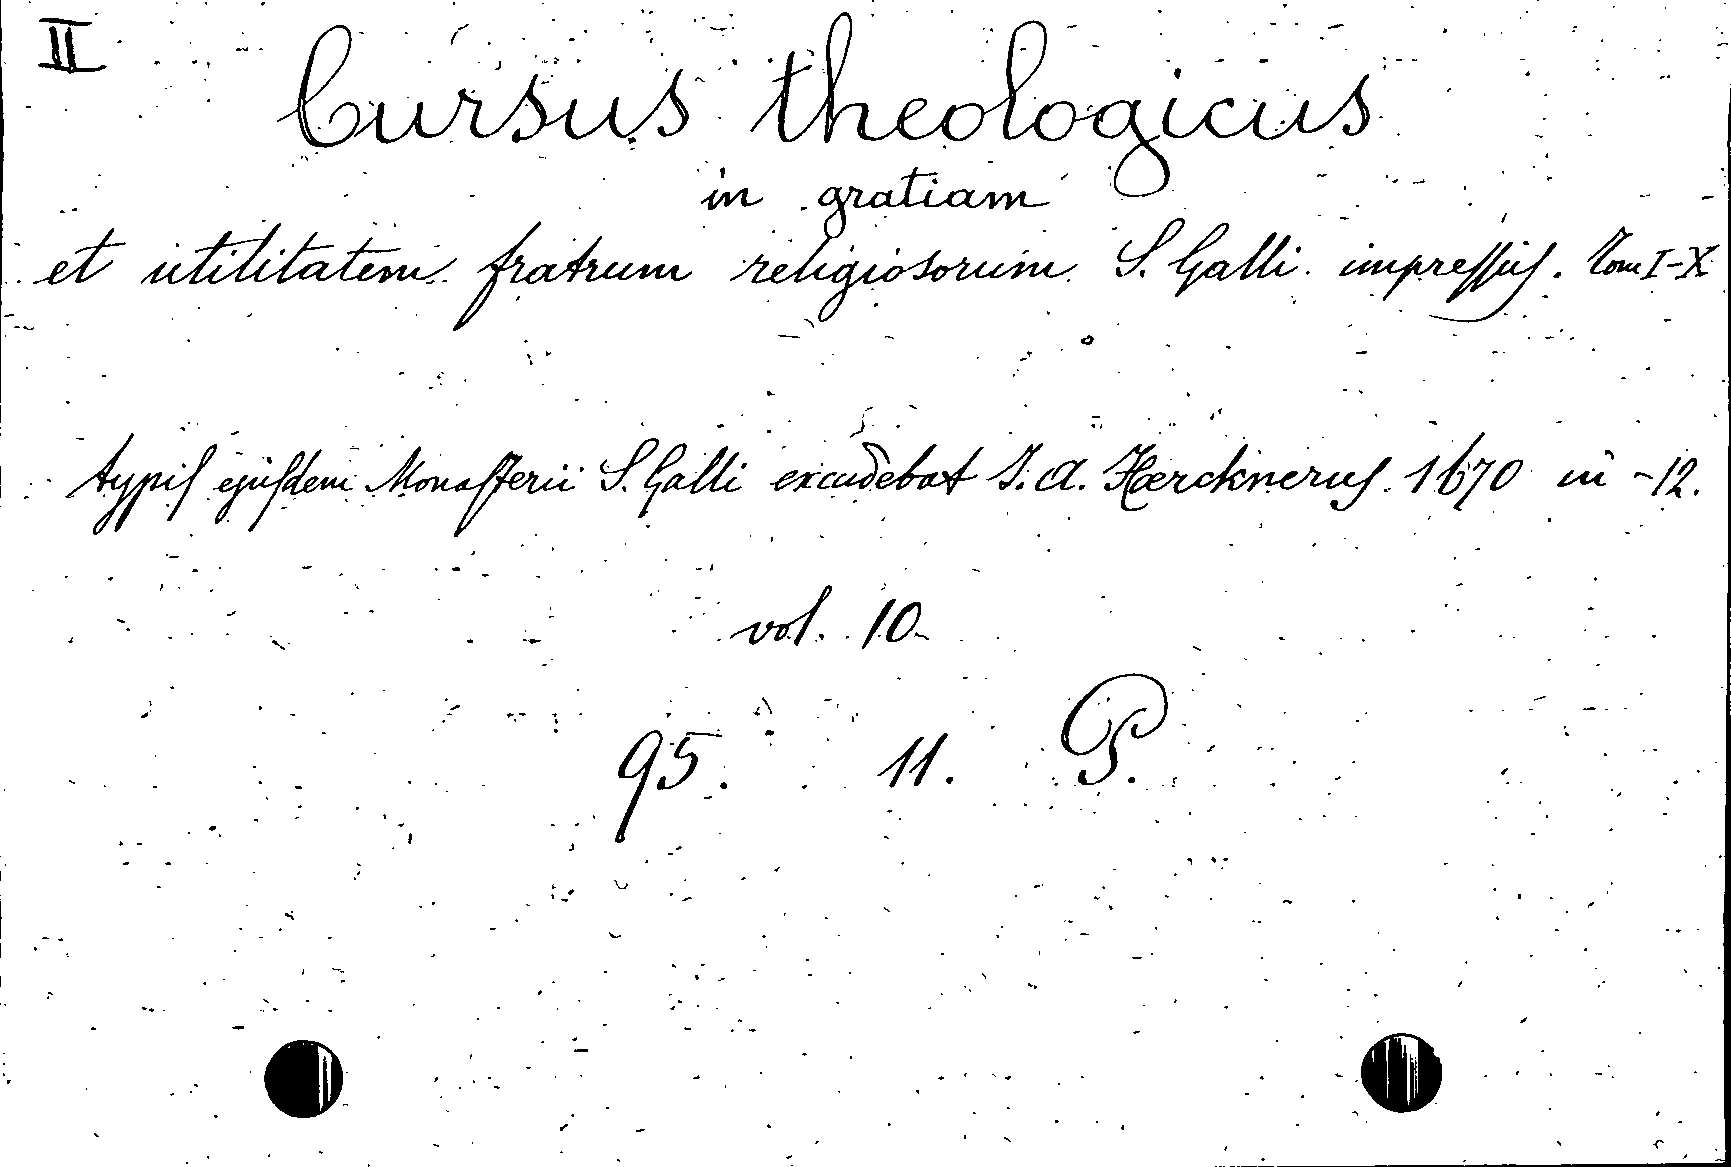 II
Cursus theologicus
in gratiam
et utilitatem fratrum religiosorum S. Galli impressus. Tom I-X
typis ejusdem Monasterii S. Galli excudebat J. A. Hærcknerus 1670 in -12.
vol. 10
95. 11. P.